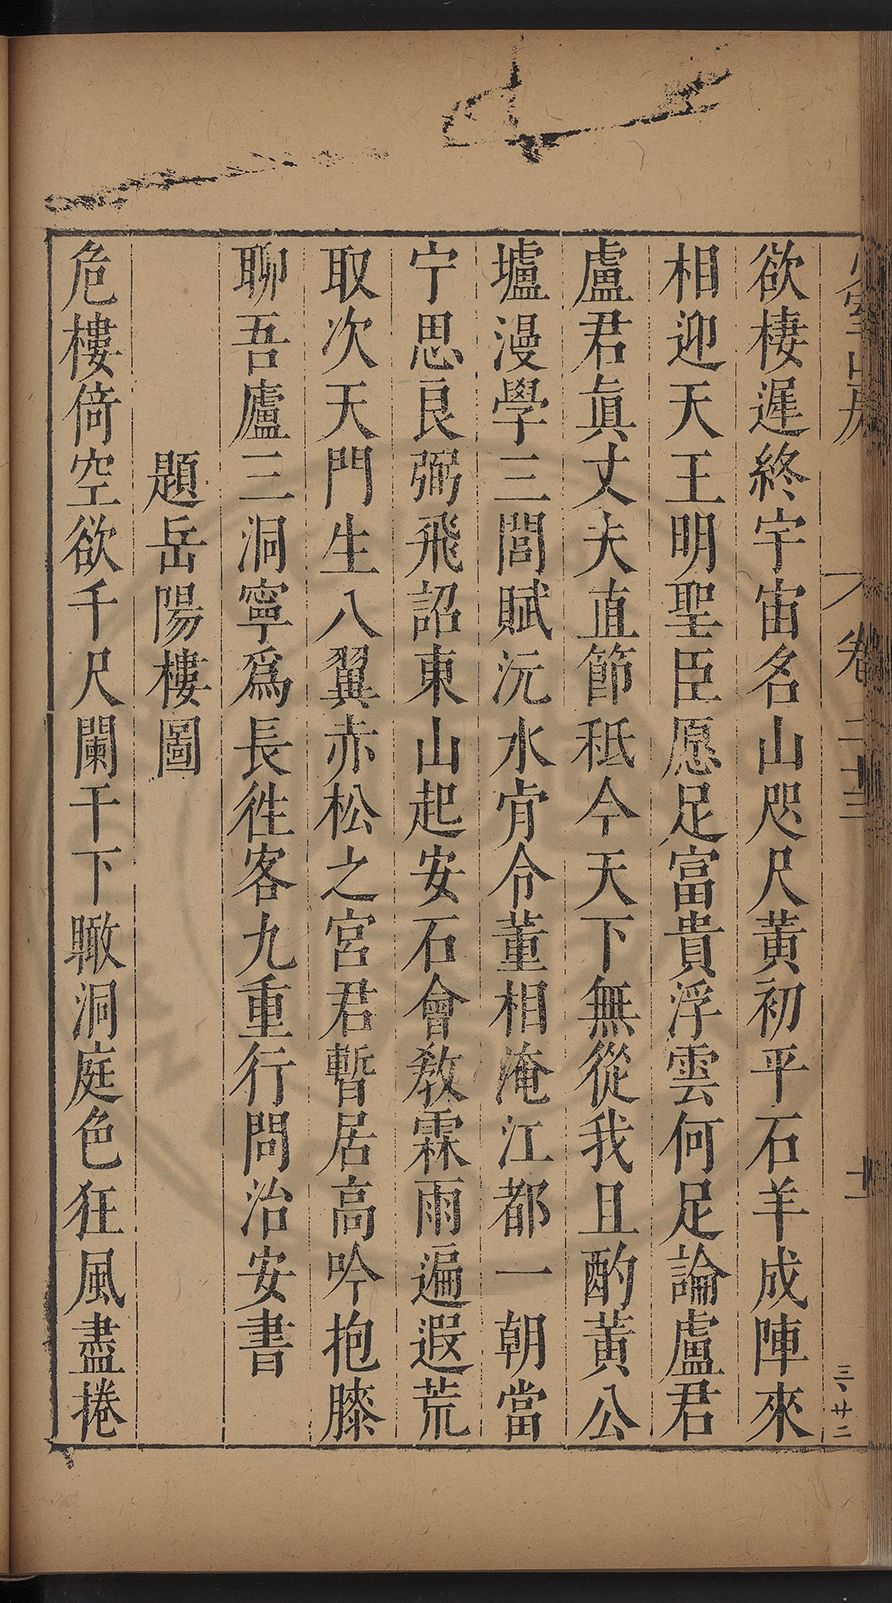 欲棲遲終宇宙名山咫尺黃初平石羊成陣來
相迎天王明聖臣愿足富貴浮雲何足論盧君
盧君眞丈夫直節秪今天下無從我且酌黃公
壚漫學三閭賦沅水肯令董相淹江都一朝當
宁思良弼飛詔東山起安石會敎霖雨遍遐荒
取次天門生八翼赤松之宮君暫居高吟抱膝
聊吾廬三洞寧爲長徃客九重行問治安書
題岳陽樓圖
危樓倚空欲千尺闌干下瞰洞庭色狂風盡捲